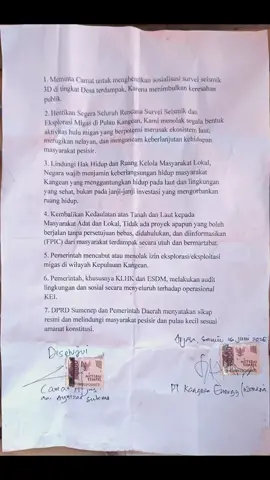 1. Meminta Camat untuk menghentikan sosialisasi survei seismik
3D di tingkat Desa terdampak, Karena menimbulkan keresahan
publik.
2. Hentikan Segera Seluruh Rencana Survei Seismik dan
Eksplorasi Migas di Pulau Kangean, Kami menolak segala bentuk
aktivitas hulu migas yang berpotensi merusak ekosistem laut,
merugikan nelayan, dan mengancam keberlanjutan kehidupan
masyarakat pesisir.
3. Lindungi Hak Hidup dan Ruang Kelola Masyarakat Lokal,
Negara wajib menjamin keberlangsungan hidup masyarakat
Kangean yang menggantungkan hidup pada laut dan lingkungan
yang sehat, bukan pada janji-janji investasi yang mengorbankan
ruang hidup.
4. Kembalikan Kedaulatan atas Tanah dan Laut kepada
Masyarakat Adat dan Lokal, Tidak ada proyek apapun yang boleh
berjalan tanpa persetujuan bebas, didahulukan, dan diinformasikan
(FPIC) dari masyarakat terdampak secara utuh dan bermartabat.
5. Pemerintah mencabut atau menolak izin eksplorasi/eksploitasi
migas di wilayah Kepulauan Kangean.
6. Pemerintah, khususnya KLHK dan ESDM, melakukan audit
lingkungan dan sosial secara menyeluruh terhadap operasional
KEI.
7. DPRD Sumenep dan Pemerintah Daerah menyatakan sikap
resmi dan melindungi masyarakat pesisir dan pulau kecil sesuai
amanat konstitusi.
Disetujui
Camat
PT Kangean Energy Indonesia